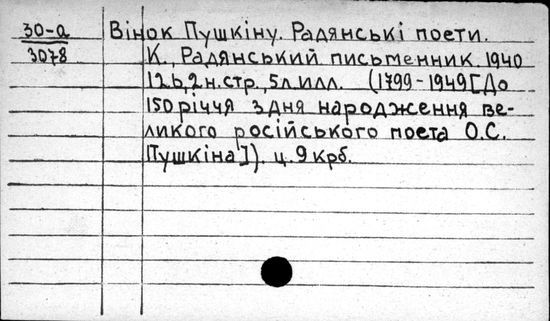 30-а Вінок Пушкіну. Радянські поети.
3078 К., Радянський письменник. 1940
126, 2 н. стр., 5 л. илл. (1799-1949 [До
150 річчя з дня народження ве-
ликого російського поета О.С.
Пушкіна]). ц. 9 крб.